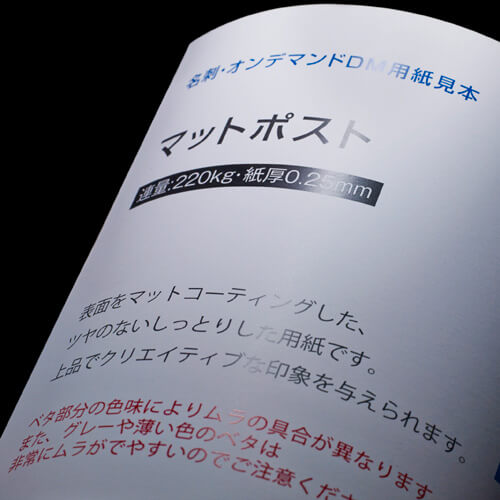 名刺・オンデマンドDM用紙見本
マットポスト
連量:220kg・紙厚0.25mm
表面をマットコーティングした、
ツヤのないしっとりした用紙です。
上品でクリエイティブな印象を与えられます。
ベタ部分の色味によりムラの具合が異なります
また、グレーや薄い色のベタは
非常にムラがでやすいのでご注意くだ